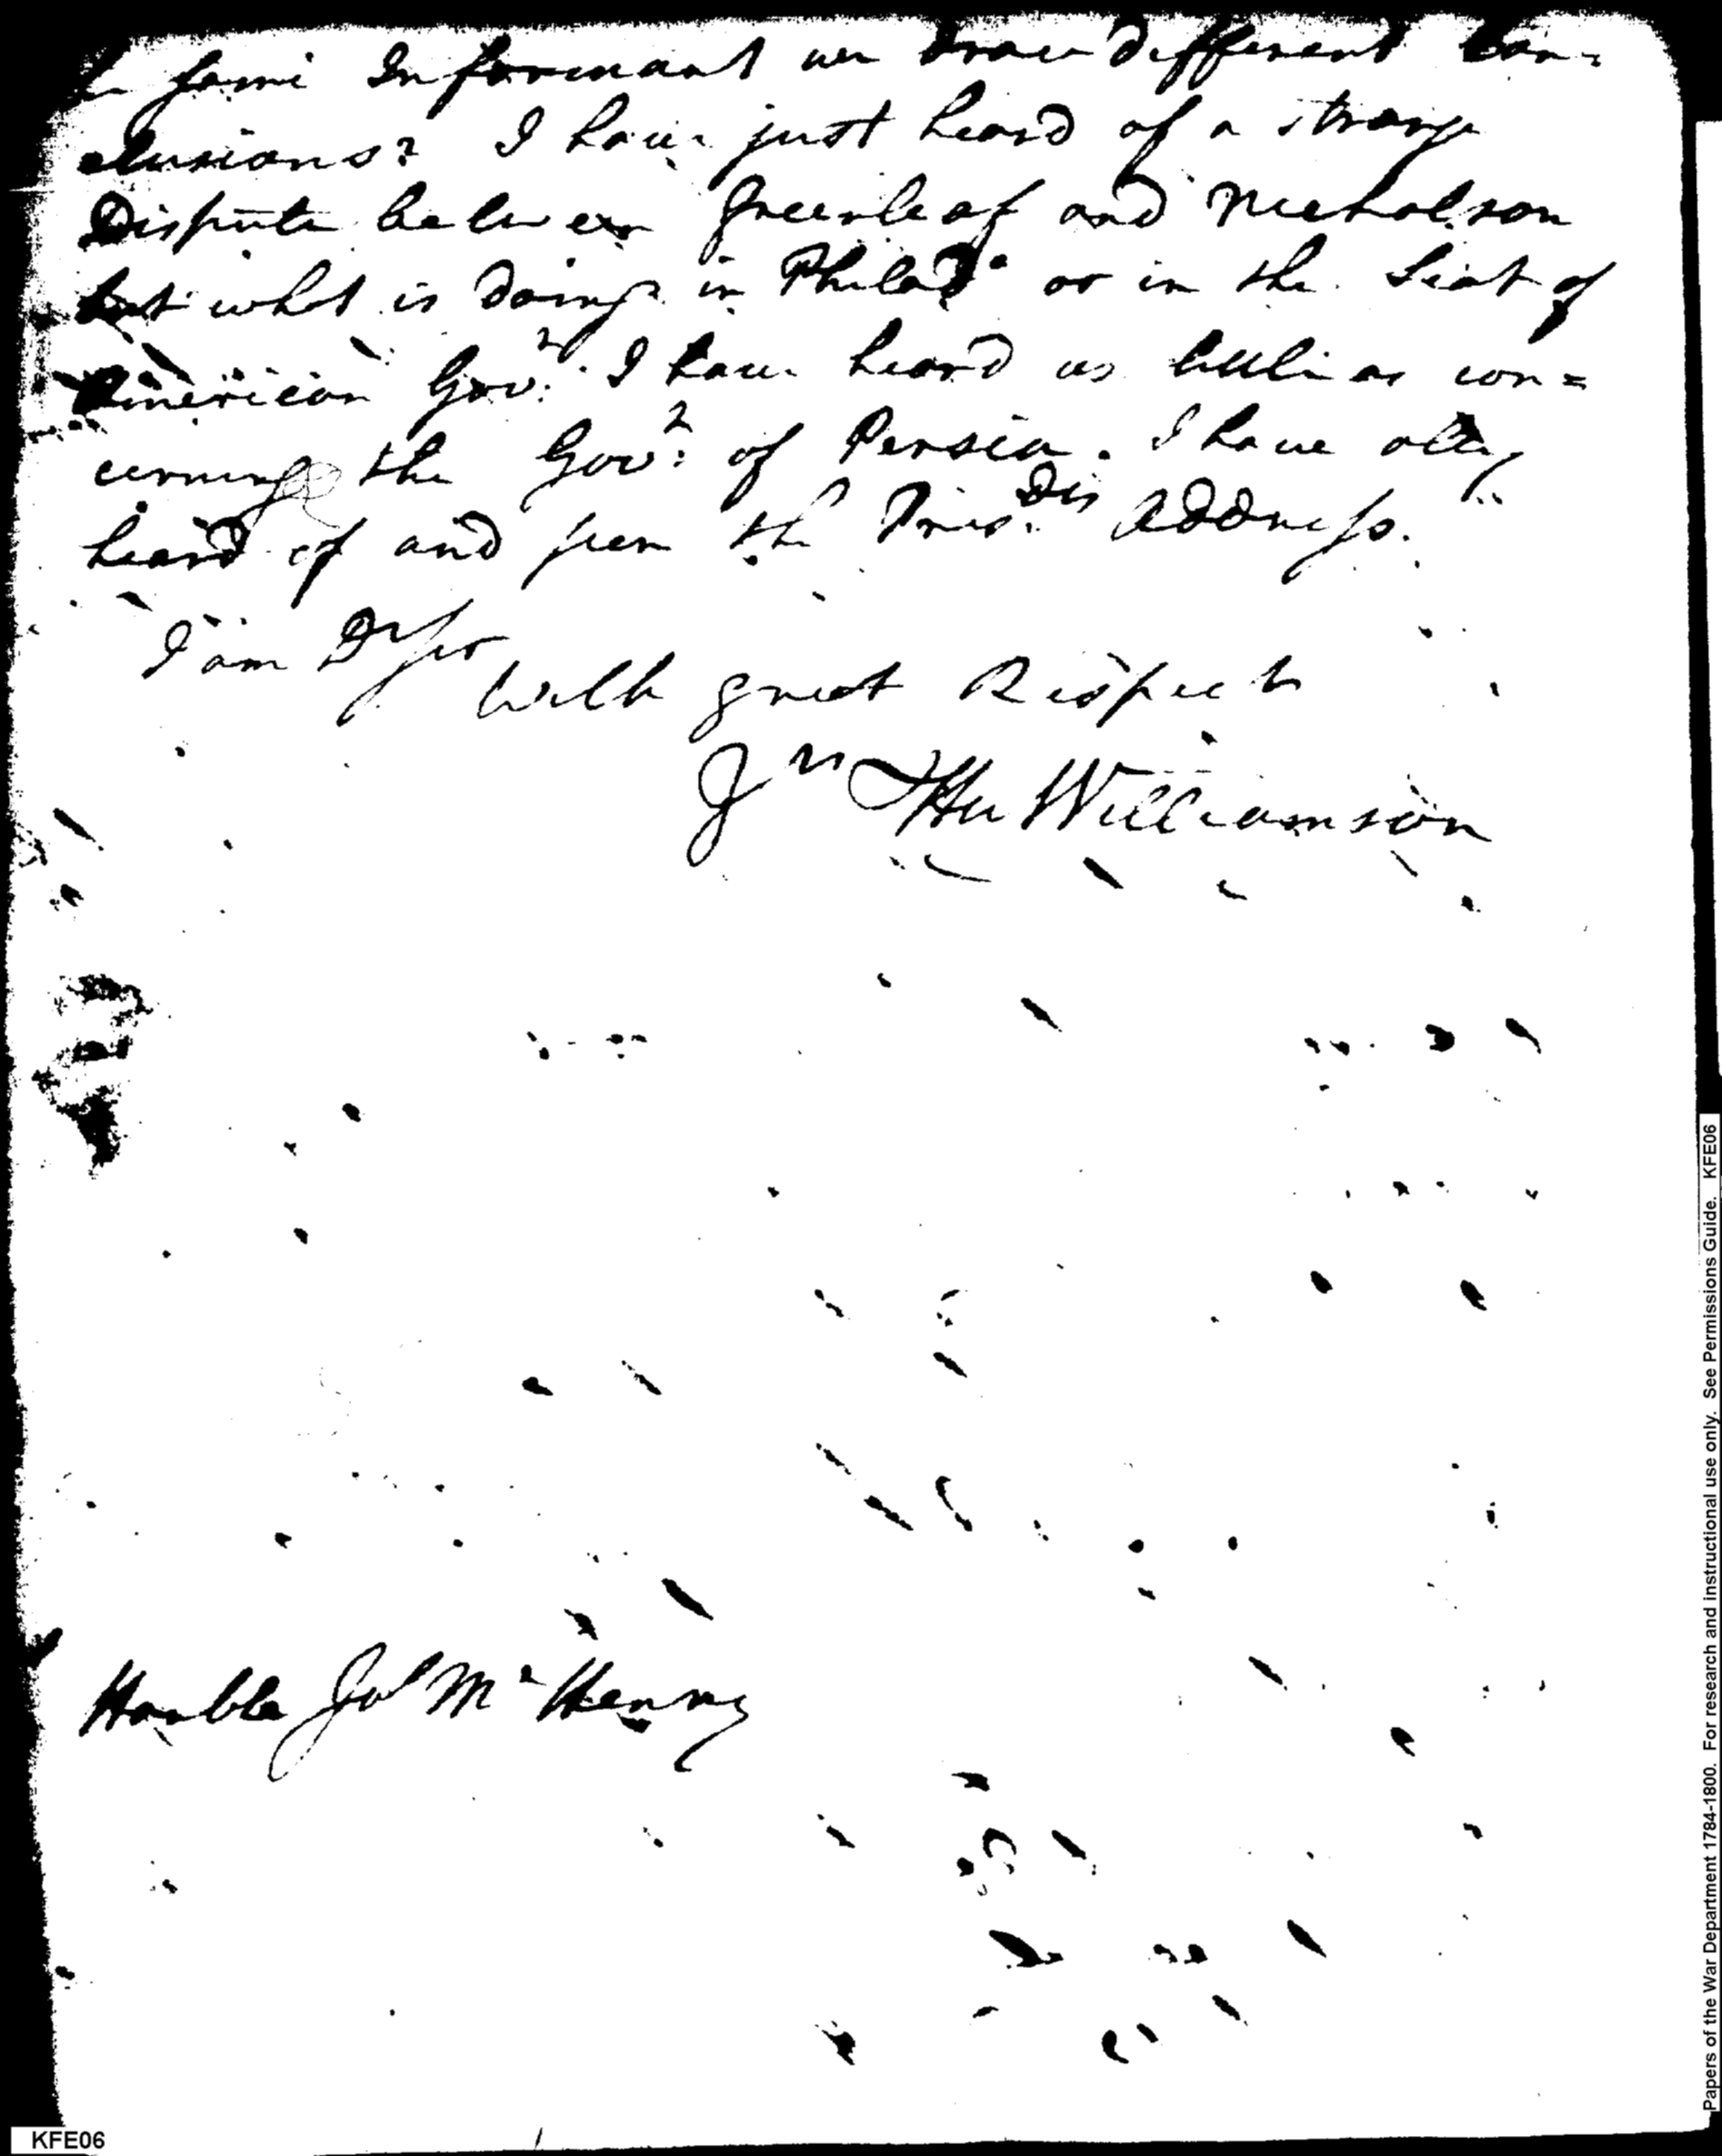 same Informant we draw different Con=
clusions? I have just heard of a strange
Dispute between Greenleaf and Nicholson
but what is doing in Philadª or in the Seat of
American Govᵗ. I have heard as little as con=
cerning the Govᵗ: of Persia. I have
heard of and seen the Presᵈᵗˢ Address.
I am Dʳ Sir
With great Respect
Hu Williamson
Honble Jaˢ Mᶜ Henry
KFE06
Papers of the War Department 1784-1800. For research and instructional use only. See Permissions Guide. KFE06